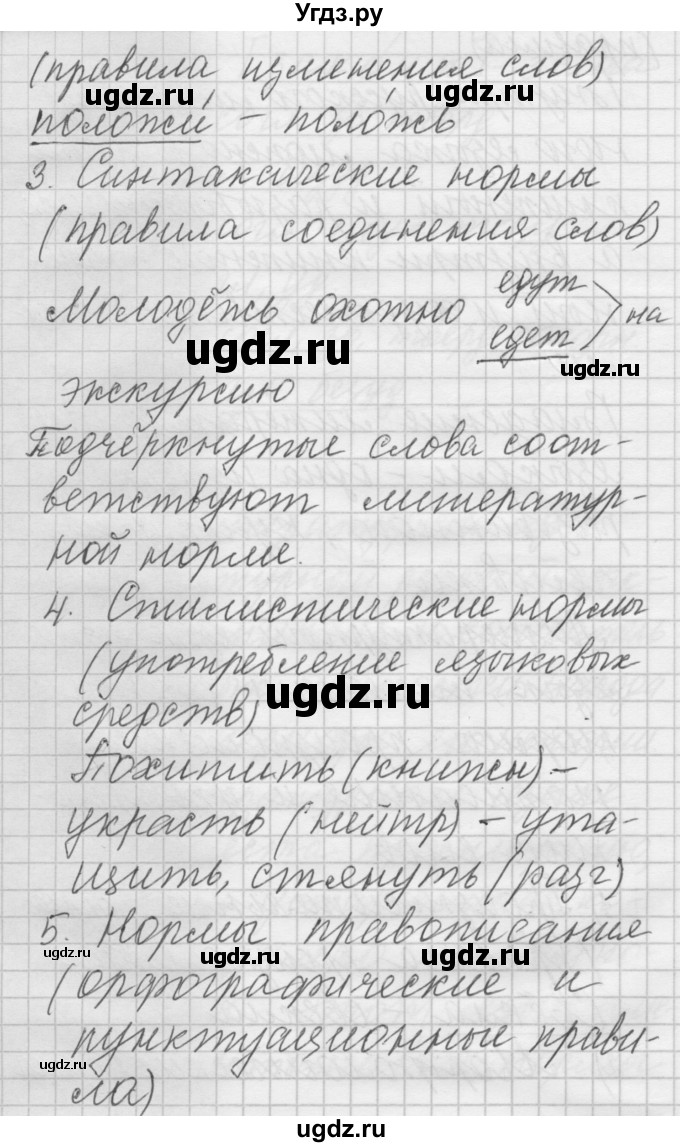 Угдз.ру
(правила изменения слов)
ugdz.ru ugdz.ru
положи́ – поло́жь
3. Синтаксические нормы
(правила соединения слов)
Молодёжь охотно едут
едет на
ugdz.ru ugdz.ru
экскурсию
Подчёркнутые слова соот-
ветствуют литератур-
ной норме.
4. Стилистические нормы
(употребление языковых
ugdz.ru
средств)
Похитить (книжн) –
украсть (нейтр) – ута-
щить, стянуть (разг)
5. Нормы правописания
ugdz.ru ugdz.ru
(орфографические и
пунктуационные прави-
ugdz.ru
ла)
ugdz.ru